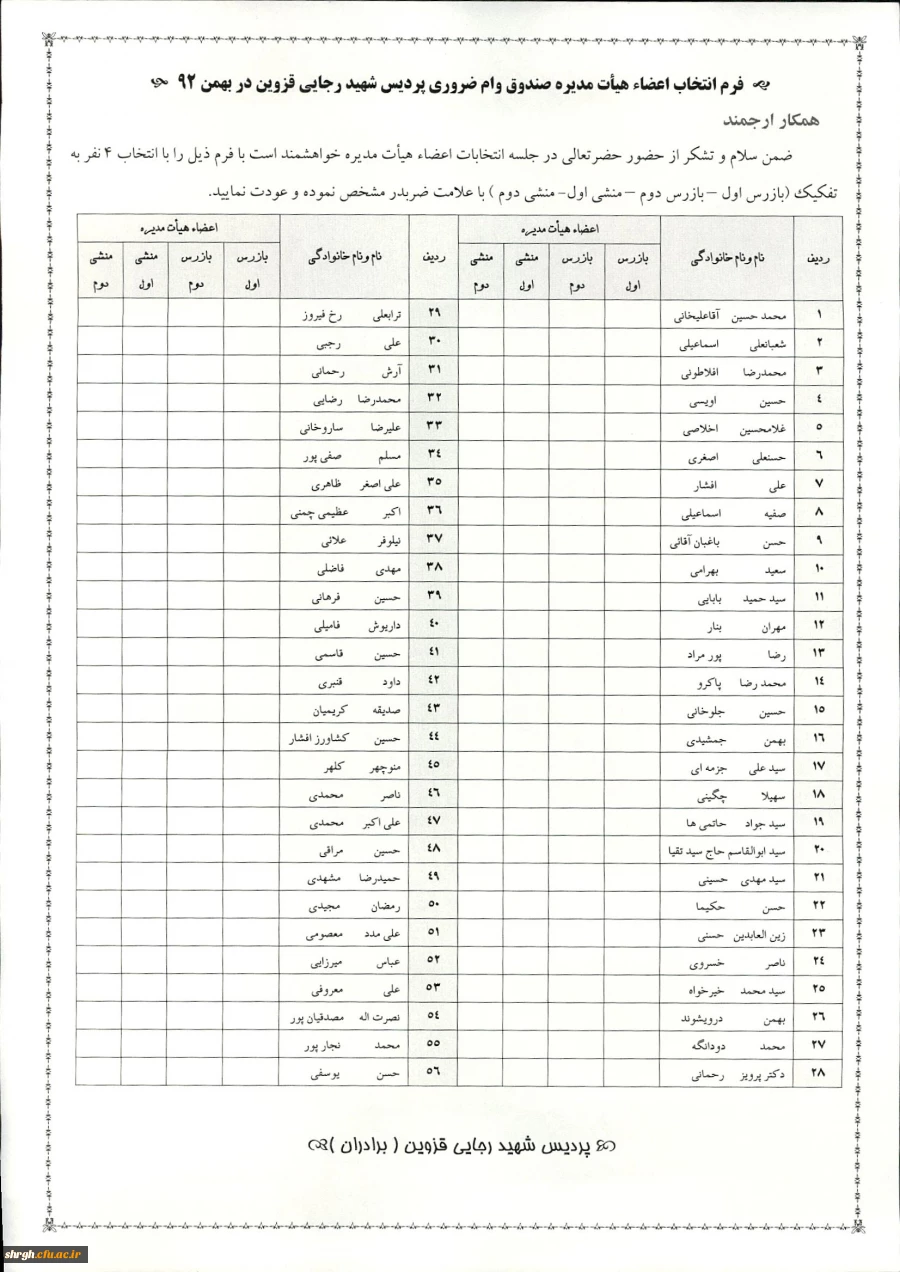 فرم انتخاب اعضاء هیأت مدیره صندوق وام ضروری پردیس شهید رجایی قزوین در بهمن ۹۲
همکار ارجمند
ضمن سلام و تشکر از حضور حضرتعالی در جلسه انتخابات اعضاء هیأت مدیره خواهشمند است با فرم ذیل را با انتخاب ۴ نفر به
تفکیک (بازرس اول – بازرس دوم – منشی اول- منشی دوم ) با علامت ضربدر مشخص نموده و عودت نمایید.
ردیف نام و نام خانوادگی اعضاء هیأت مدیره ردیف نام و نام خانوادگی اعضاء هیأت مدیره
بازرس اول بازرس دوم منشی اول منشی دوم بازرس اول بازرس دوم منشی اول منشی دوم
۱ محمد حسین آقاعلیخانی ۲۹ ترابعلی رخ فیروز
۲ شعبانعلی اسماعیلی ۳۰ علی رجبی
۳ محمدرضا افلاطونی ۳۱ آرش رحمانی
٤ حسین اویسی ۳۲ محمدرضا رضایی
۵ غلامحسین اخلاصی ۳۳ علیرضا ساروخانی
٦ حسنعلی اصغری ۳٤ مسلم صفی پور
۷ علی افشار ۳۵ علی اصغر ظاهری
۸ صفیه اسماعیلی ۳٦ اکبر عظیمی چمنی
۹ حسن باغبان آقائی ۳۷ نیلوفر علائی
۱۰ سعید بهرامی ۳۸ مهدی فاضلی
۱۱ سید حمید بابایی ۳۹ حسین فرهانی
۱۲ مهران بنار ٤۰ داریوش فامیلی
۱۳ رضا پور مراد ٤۱ حسین قاسمی
۱٤ محمد رضا پاکرو ٤۲ داود قنبری
۱۵ حسین جلوخانی ٤۳ صدیقه کریمیان
۱٦ بهمن جمشیدی ٤٤ حسین کشاورز افشار
۱۷ سید علی جزمه ای ٤۵ منوچهر کلهر
۱۸ سهیلا چگینی ٤٦ ناصر محمدی
۱۹ سید جواد حاتمی ها ٤۷ علی اکبر محمدی
۲۰ سید ابوالقاسم حاج سید تقیا ٤۸ حسین مراقی
۲۱ سید مهدی حسینی ٤۹ حمیدرضا مشهدی
۲۲ حسن حکیما ۵۰ رمضان مجیدی
۲۳ زین العابدین حسنی ۵۱ علی مدد معصومی
۲٤ ناصر خسروی ۵۲ عباس میرزایی
۲۵ سید محمد خیرخواه ۵۳ علی معروفی
۲٦ بهمن درویشوند ۵٤ نصرت اله مصدقیان پور
۲۷ محمد دودانگه ۵۵ محمد نجار پور
۲۸ دکتر پرویز رحمانی ۵٦ حسن یوسفی
پردیس شهید رجایی قزوین ( برادران )
shrgh.cfu.ac.ir